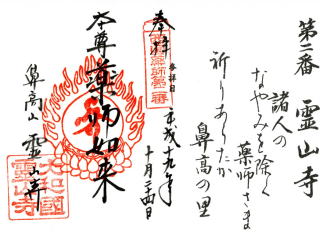 第二番 霊山寺
諸人の
なやみを除く
薬師さま
祈りあらたか
鼻高の里
奉拝
参拝日
平成十九年
十月二十四日
本尊 薬師如来
鼻高山 霊山寺
大和國
霊山寺